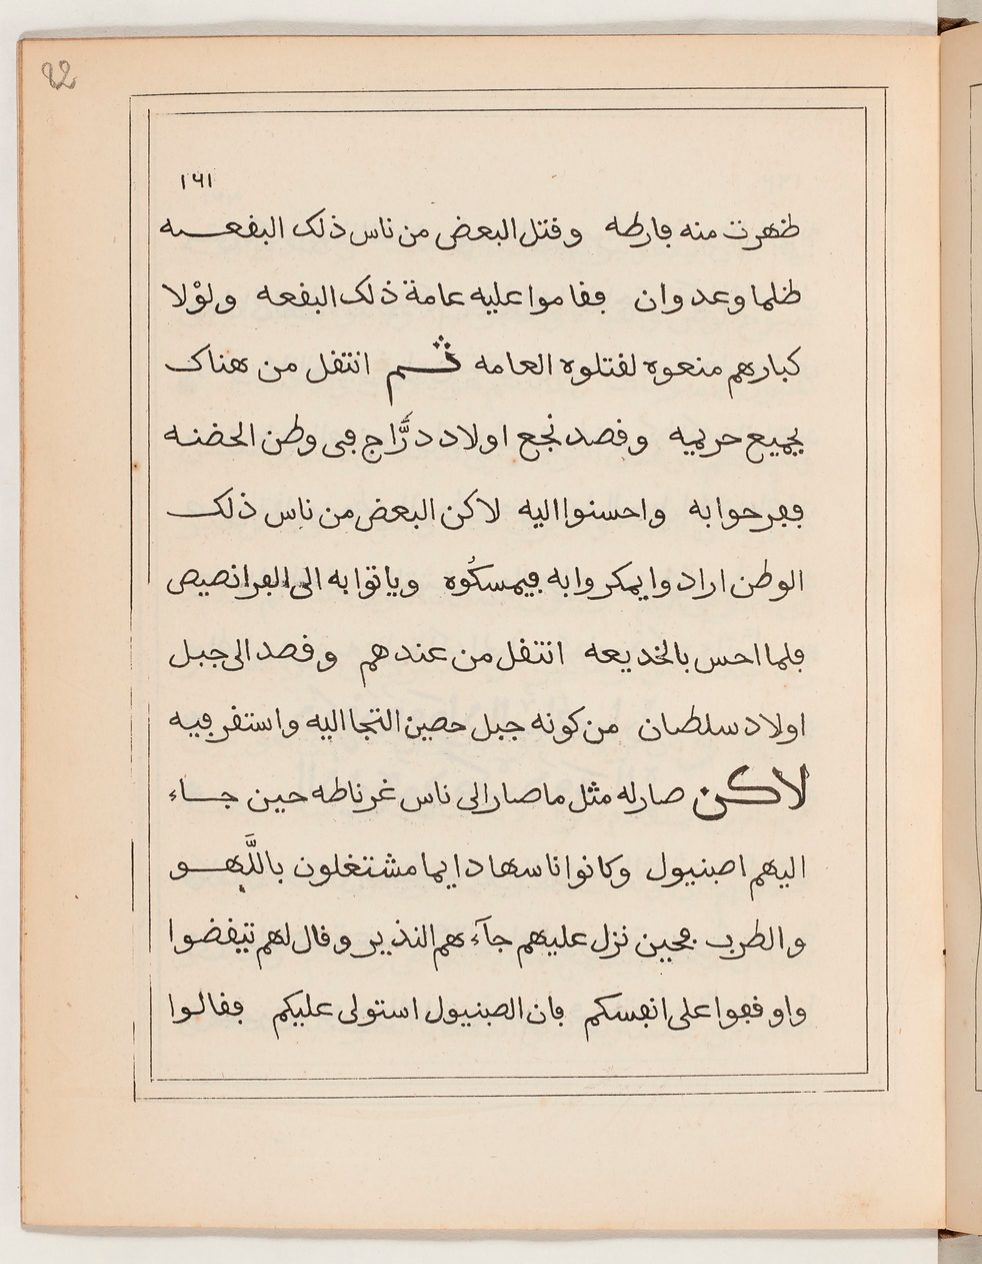 82
١٦١
ظهرت منه فارطه وقتل البعض من ناس ذلك البقعه
ظلما وعدوان فقاموا عليه عامة ذلك البقعه ولوْلا
كبارهم منعوه لقتلوه العامه ثم انتقل من هناك
بجميع حريمه وقصد نجع اولاد درَّاج في وطن الحضنه
ففرحوا به واحسنوا اليه لاكن البعض من ناس ذلك
الوطن ارادوا يمكروا به فيمسكُوه وياتوا به الى الفرانصيص
فلما احس بالخديعه انتقل من عندهم وقصد الى جبل
اولاد سلطان من كونه جبل حصين التجا اليه واستقر فيه
لاكن صار له مثل ما صار الى ناس غرناطه حين جاء
اليهم اصبنيول وكانوا ناسها دايما مشتغلون باللَّهو
والطرب فحين نزل عليهم جآءهم النذير وقال لهم تيقضوا
واوقفوا على انفسكم فان الصبنيول استولى عليكم فقالوا